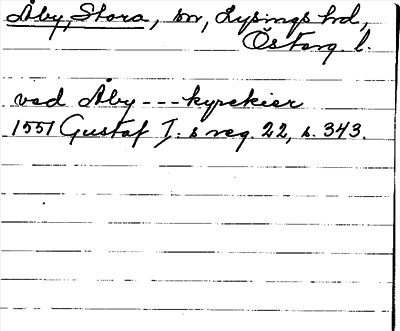 Åby, Stora, sn, Lysings hd,
Österg. l.
ved Åby --- kyrckier
1551 Gustaf I. s reg. 22, s. 343.